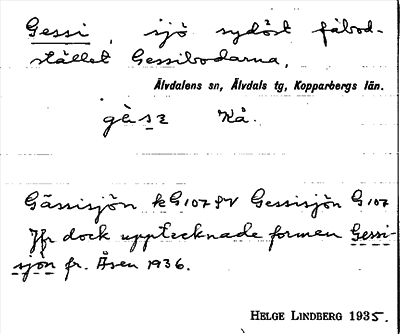 Gessi, sjö sydöst fäbod-
stället Gessibodarna,
Älvdalens sn, Älvdals tg, Kopparbergs län.
Kå.
Gässisjön kG107 SV Gessisjön G107
Jfr dock upptecknade formen Gessi-
sjön fr. Åsen 1936.
HELGE LINDBERG 1935.